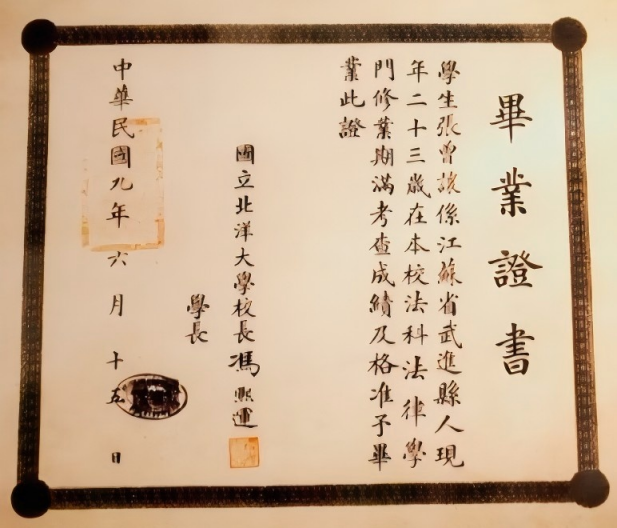 畢業證書
學生張曾該係江蘇省武進縣人現
年二十三歲在本校法科法律學
門修業期滿考查成績及格准予畢
業此證
國立北洋大學校長馮熙運
學長
中華民國九年六月十五日